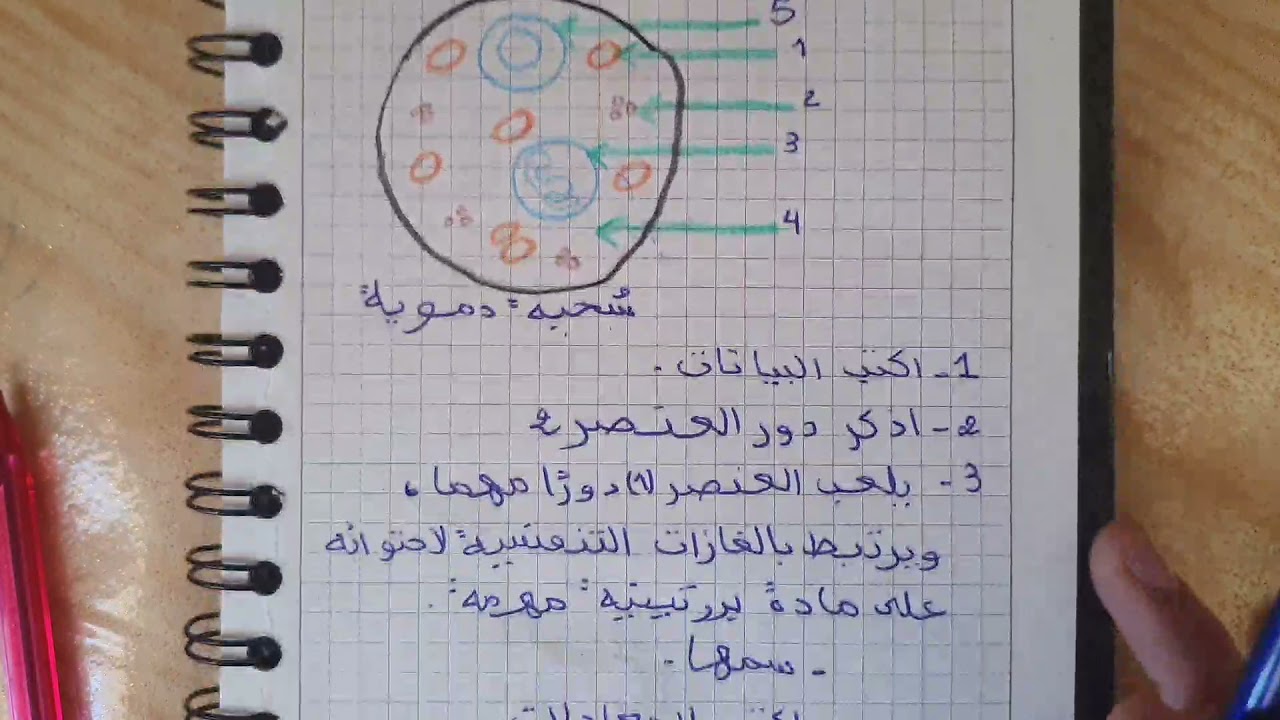 5
1
2
3
4
سُحبة دموية
1- اكتب البيانات.
2- اذكر دور العنصر 2
3- يلعب العنصر (1) دورًا مهما،
ويرتبط بالغازات التنفسية لاحتوائه
على مادة بروتينية مهمة.
- سمها.